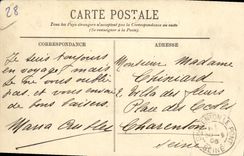 28
CARTE POSTALE
Tous les Pays étrangers n'acceptent pas la Correspondance au recto
(Se renseigner à la Poste)
CORRESPONDANCE
ADRESSE
Je suis toujours
en voyage mais
je ne vous oublie
pas et vous envoie
de bons baisers
Maria
Monsieur Madame
2 Villa des fleurs
Place des Ecoles
Charenton
Seine